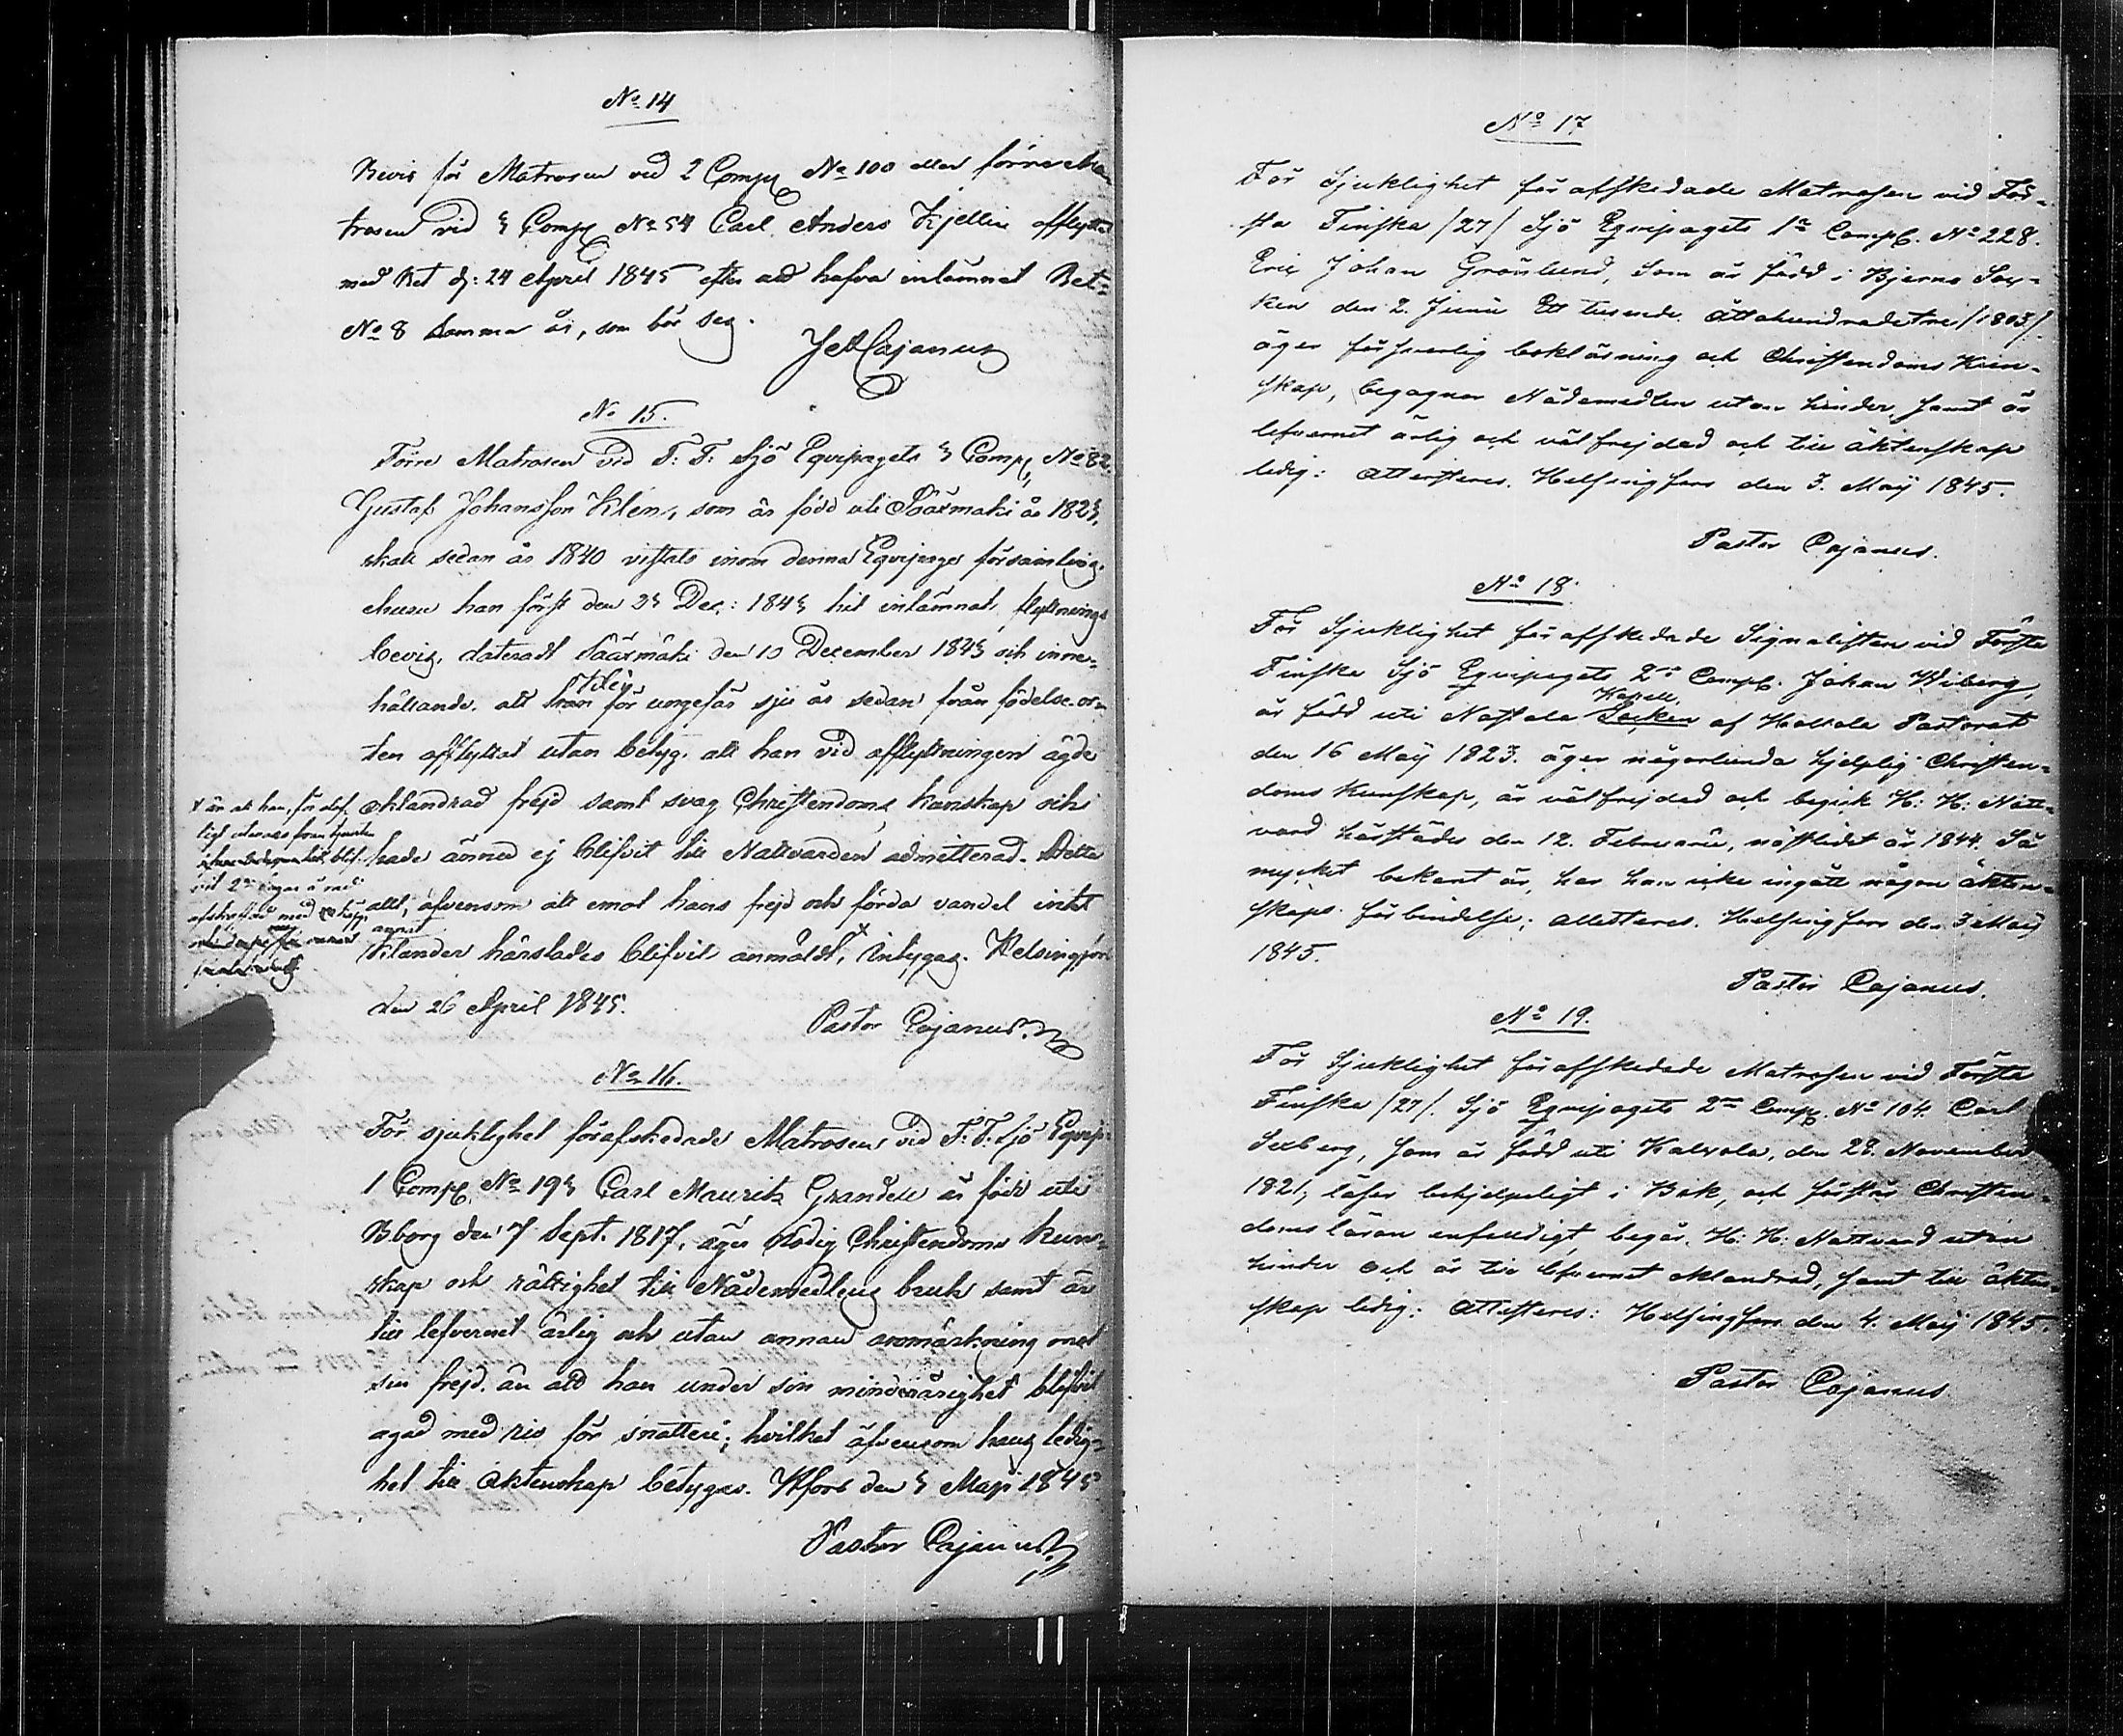 No 14
Bevis för Matrosen vid 2 Comp No 100 eller förra Ma
trosen vid 3 Comp No 54 Carl Anders Kjellin afflytta
med Bet d: 24 April 1845 efter att hafva inlämnat Bet=
No 8 samma år, som bör seg.
Cajanus
No 15.
Förre Matrosen vid F: F: Sjö Eqvipagets 3 Comp, No 82.
Gustaf Johansson Klen, som är född uti Sääxmäki år 1823,
skall sedan år 1840 vistats inom denna Eqvipage församling,
ehuru han först den 23 Dec: 1843 hit inlämnat flyttnings
bevis, dateradt Sääxmäki den 10 December 1843 och inne=
hållande, att Klen
han för ungefär sju år sedan från födelse or=
ten afflyttat utan betyg, att han vid afflyttningen ägde
oklandrad frejd samt svag Christendoms kunskap och
hade ännu ej blifvit till Nattvarden admitterad. Detta
allt, äfvensom att emot hans frejd och förda vandel intet
annat
klander härstädes blifvit anmäldt, x intygas. Helsingfors
den 26 April 1845.
Pastor Cajanus.
x än at han, för
No 16.
För sjuklighet förafskedade Matrosen vid F: F: Sjö Eqvip
1 Comp, No 193 Carl Mauritz Grandell är född uti
Bborg den 7 Sept. 1817, äger nödig Christendoms kun=
skap och rättighet till Nådemedlens bruk samt är
till lefvernet ärlig och utan annan anmärkning mot
sin frejd, än att han under sin minderårighet blifvit
agad med ris för snatteri; hvilket äfvensom hans ledig=
het till äktenskap betygas. Hfors den 3 Maji 1845
Pastor Cajanus
No 17
För Sjuklighet förafskedade Matrosen vid För=
sta Finska /27/ Sjö Eqvipagets 1a Comp. No 228.
Eric Johan Grönlund, Som är född i Bjerno Soc=
ken den 2. Junii Ett tusende Åttahundradetre /1803/.
äger försvarlig bokläsning och Christendoms Kun=
skap, begagnar Nådemedlen utan hinder, samt är
lefvernet ärlig och väl frejdad och till äktenskap
ledig: Attesteras. Helsingfors den 3. Maij 1845.
Pastor Cajanus.
No 18.
För Sjuklighet förafskedade Signalisten vid Första
Finska Sjö Eqvipagets 2a Comp. Johan Wiberg,
är född uti Nastola Kapell
Socken af Hollola Pastorat
den 16 Maij 1823. äger någorlunda hjelplig Christen=
doms Kunskap, är väl frejdad och begick H: H: Natt=
vard härstädes den 12. Februarii, nästledit år 1844. Så
mycket bekant är, har han icke ingått någon äkten=
skaps förbindelse; attesteras. Helsingfors den 3 Maij
1845.
Pastor Cajanus.
No 19.
För Sjuklighet förafskedade Matrosen vid Första
Finska /27/. Sjö Eqvipagets 2a Comp. No 104. Carl
Seeberg, som är född uti Kalvola, den 28. November
1821, läser behjelpeligt i Bok, och förstår Christen=
doms läran enfaldigt, begår H: H: Nattvard utan
hinder och är till lefvernet oklandrad, samt till äkten=
skap ledig: Attesteras: Helsingfors den 4. Maij 1845.
Pastor Cajanus